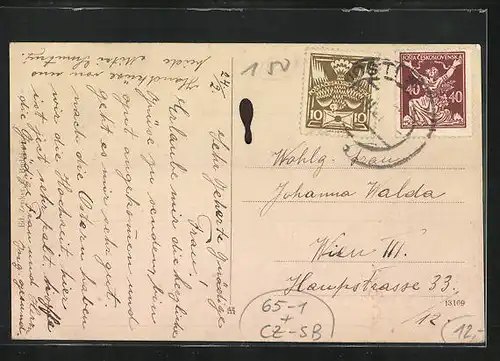 150
24/2.
Sehr geehrte Gnädige
Frau!
Erlaube mir die herzlichen
Grüsse zu senden, bin
gut angekommen und
geht es mir sehr gut.
nach die Ostern haben
wir die Hochzeit hier
ist jetzt sehr kalt, hoffe
die Gnädige Frau und Herr
Ing. gesund.
Handküsse von uns
beide
POŠTA ČESKOSLOVENSKÁ
10 10
40 40
Wohlg. Frau
Johanna Walda
Wien III.
Hauptstrasse 33.
12.
13109
65-1
+
CZ-SB
12,-